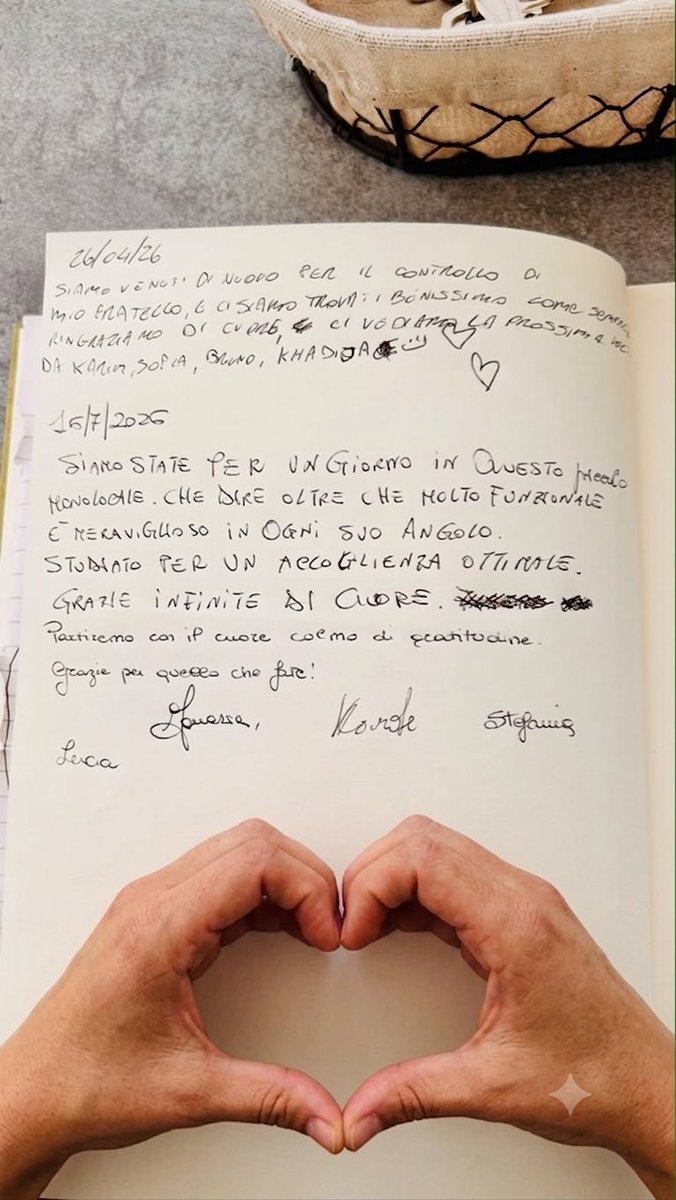 26/04/26
SIAMO VENUTI DI NUOVO PER IL CONTROLLO DI
MIO FRATELLO, E CI SIAMO TROVATI BENISSIMO COME SEMPRE
RINGRAZIAMO DI CUORE, CI VEDIAMO LA PROSSIMA
DA KARIM, SOFIA, BRUNO, KHADIJA
16/7/2026
SIAMO STATE PER UN GIORNO IN QUESTO piccolo
MONOLOCALE. CHE DIRE OLTRE CHE MOLTO FUNZIONALE
E' MERAVIGLIOSO IN OGNI SUO ANGOLO.
STUDIATO PER UN ACCOGLIENZA OTTIMALE.
GRAZIE INFINITE DI CUORE.
Partiremo con il cuore colmo di gratitudine.
Grazie per quello che fate!
Stefania
Lucia